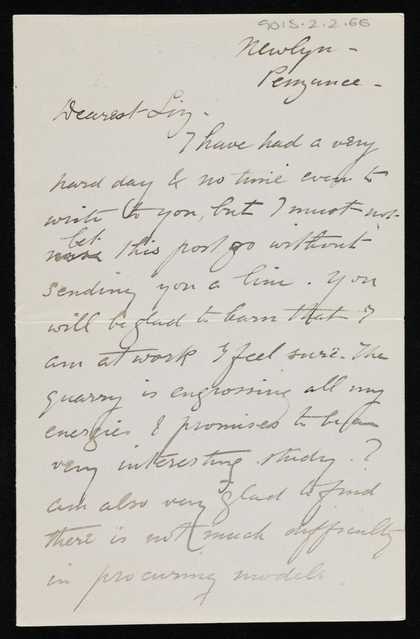 9015-2-2-66
Newlyn -
Penzance -
Dearest Liz -
I have had a very
hard day & no time even to
write to you, but I must not
let
this post go without
sending you a line. You
will be glad to learn that I
am at work I feel sure. The
quarry is engrossing all my
energies & promises to be a
very interesting study. I
am also very glad to find
there is not much difficulty
in procuring models.